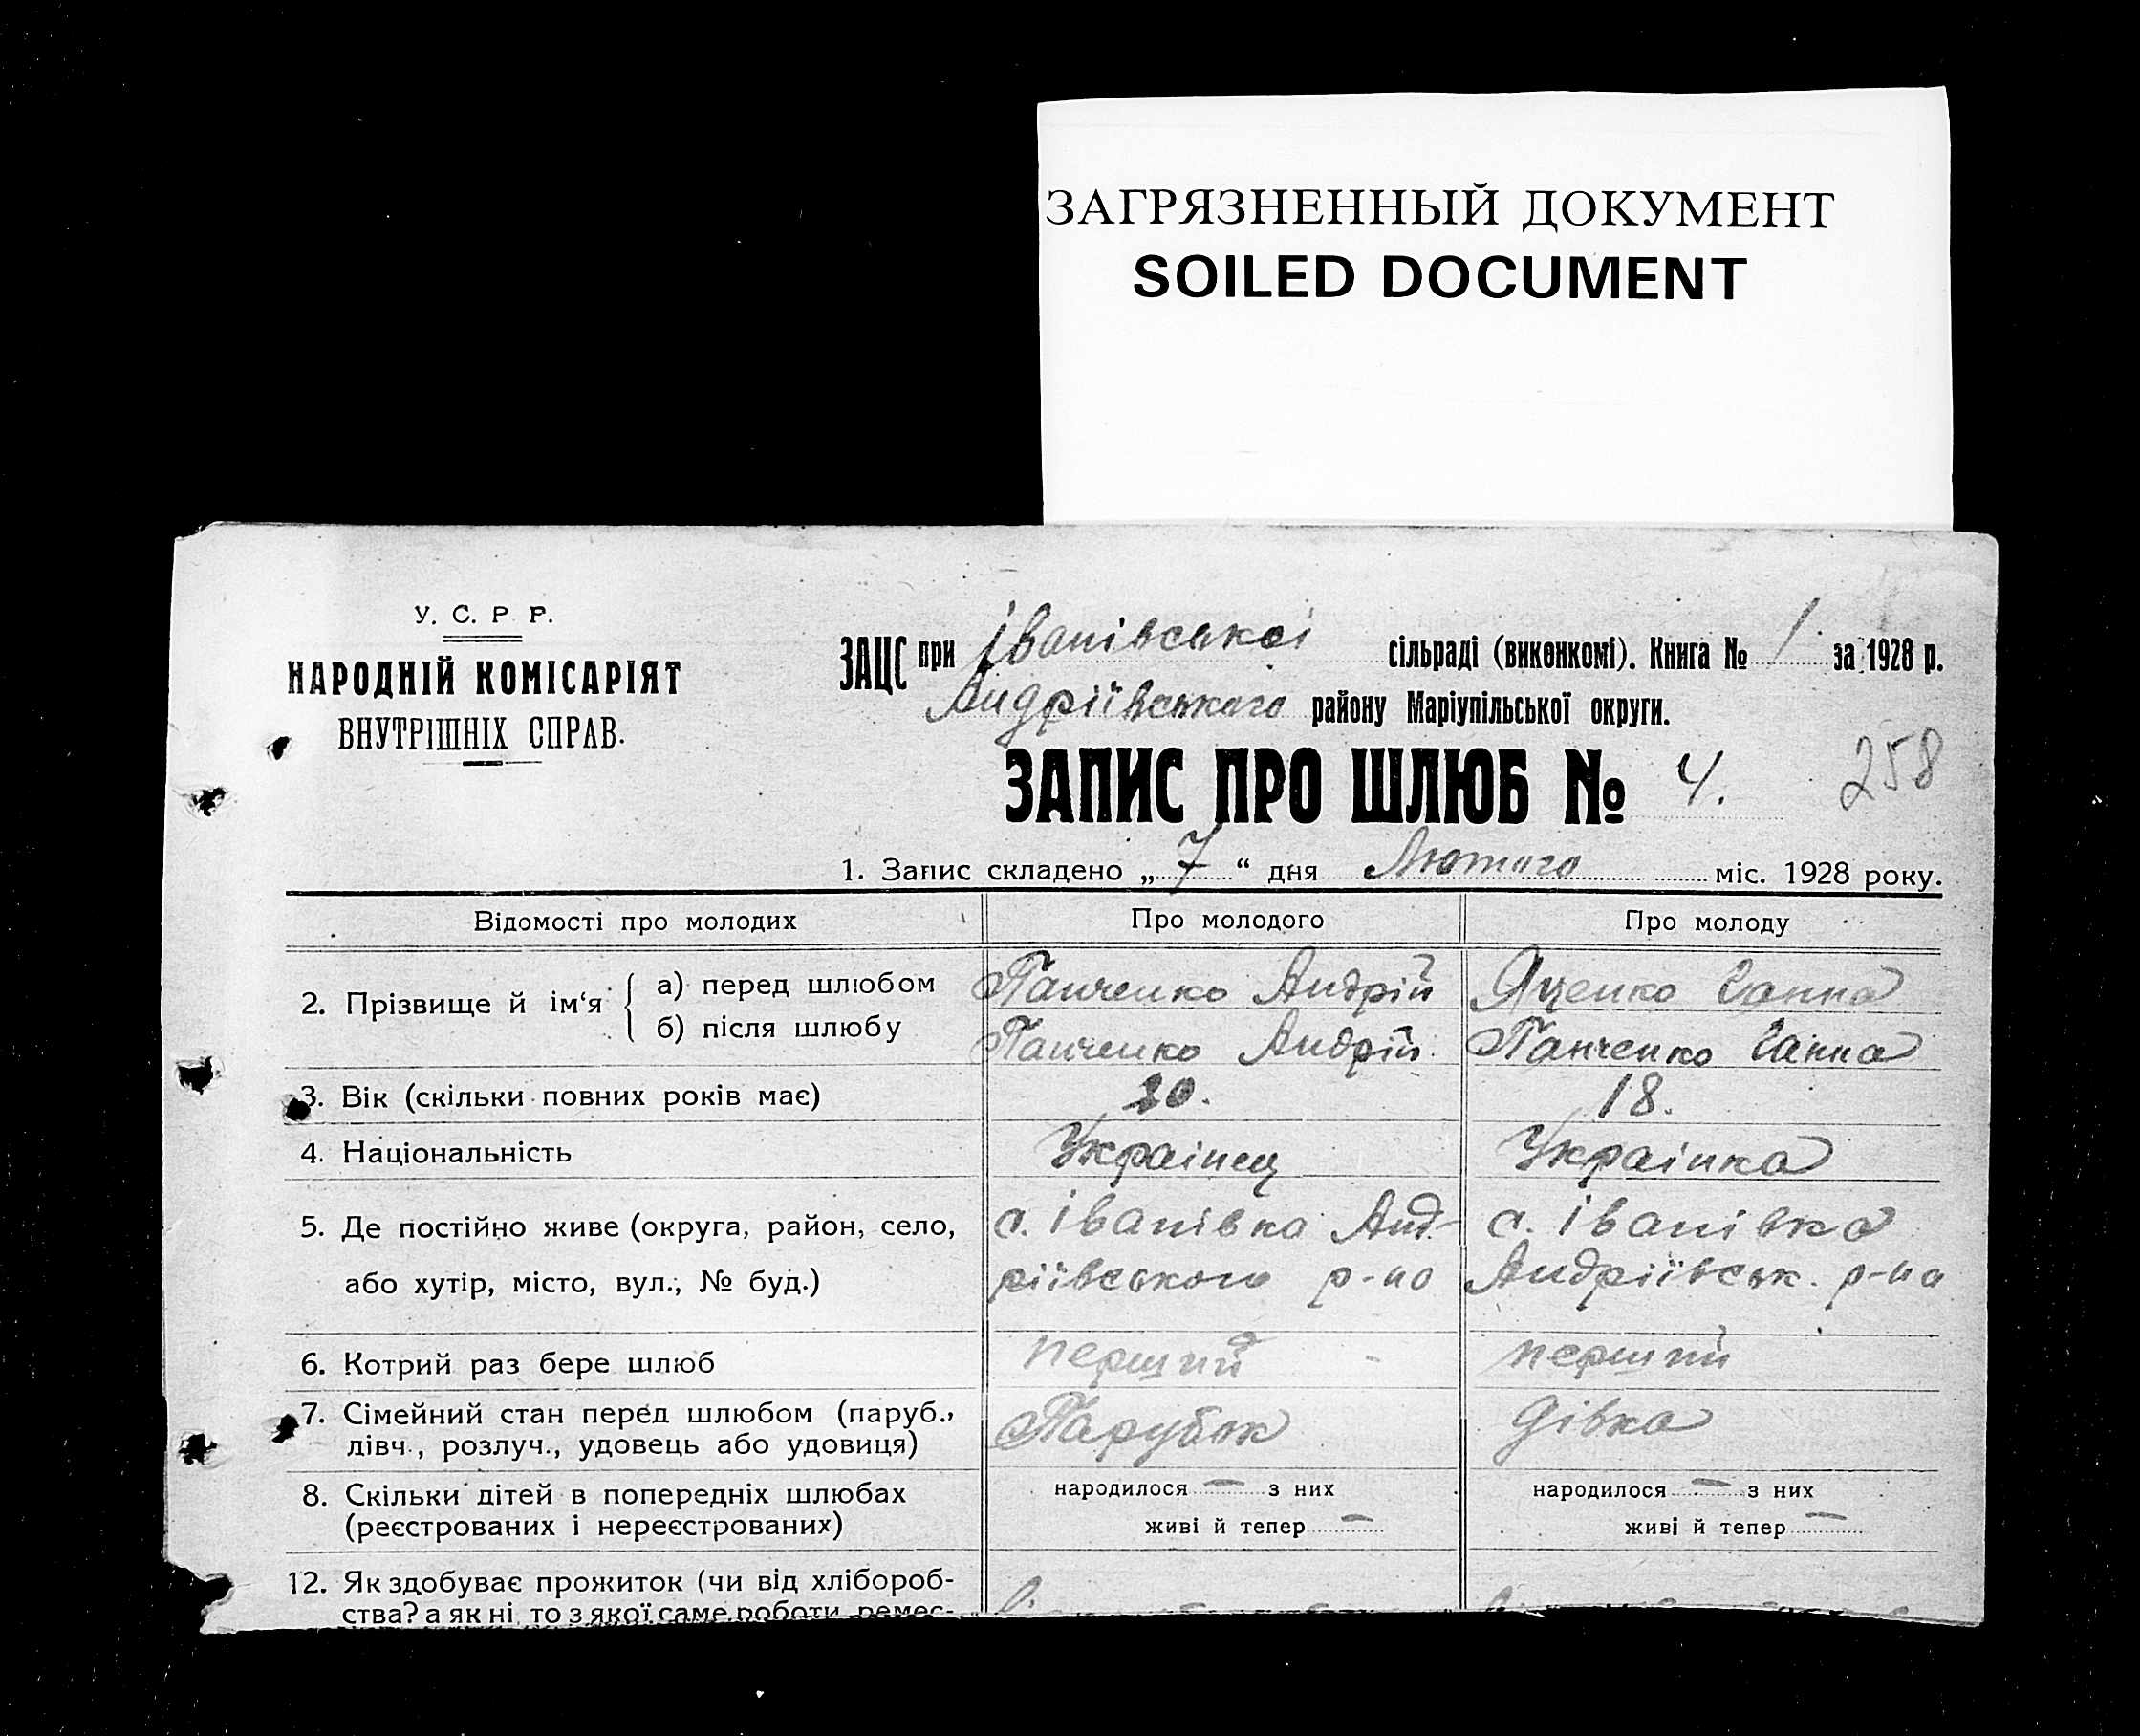 ЗАГРЯЗНЕННЫЙ ДОКУМЕНТ
SOILED DOCUMENT
У. С. Р. Р.
НАРОДНІЙ КОМІСАРІЯТ
ВНУТРІШНІХ СПРАВ.
ЗАЦС при Іванівській сільраді (виконкомі). Книга № 1 за 1928 р.
Андріївського району Маріупільської округи.
ЗАПИС ПРО ШЛЮБ № 4.
258
1. Запис складено „7“ дня Лютого міс. 1928 року.
Відомості про молодих Про молодого Про молоду
2. Прізвище й ім‘я а) перед шлюбом Панченко Андрій Яценко Ганна
б) після шлюбу Панченко Андрій. Панченко Ганна
3. Вік (скільки повних років має) 20. 18.
4. Національність Українец Українка
5. Де постійно живе (округа, район, село, с. Іванівка Анд- с. Іванівка
або хутір, місто, вул., № буд.) ріївського р-но Андріївськ. р-на
6. Котрий раз бере шлюб перший - перший
7. Сімейний стан перед шлюбом (паруб., Парубок Дівка
дівч., розлуч., удовець або удовиця)
8. Скільки дітей в попередніх шлюбах народилося — з них народилося — з них
(реєстрованих і нереєстрованих) живі й тепер — живі й тепер —
12. Як здобуває прожиток (чи від хлібороб-
ства? а як ні, то з якої саме роботи, ремес-